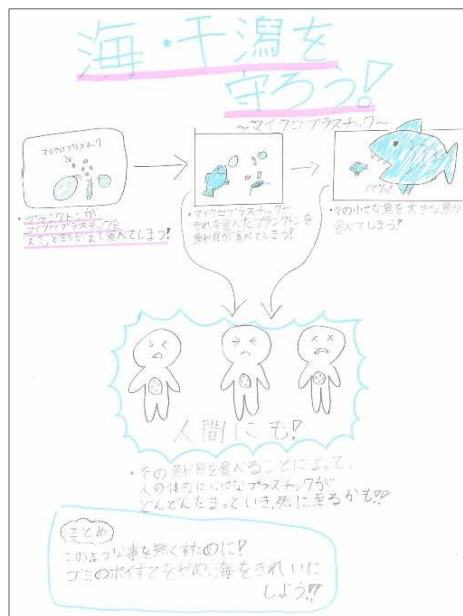 海・干潟を
守ろう!
～マイクロプラスチック～
マイクロプラスチック
・プランクトンが
マイクロプラスチックを
えさとまちがえて食べてしまう!
・マイクロプラスチックや
それを食べたプランクトンを
魚や貝が食べてしまう!
パクッ!
・その小さな魚を大きな魚が
食べてしまう!
人間にも!
・その魚や貝を食べることによって、
人の体内に小さなプラスチックが
どんどんたまっていき、死に至るかも!?
まとめ
このような事を無くすために!
ゴミのポイすてをやめ、海をきれいに
しよう!!